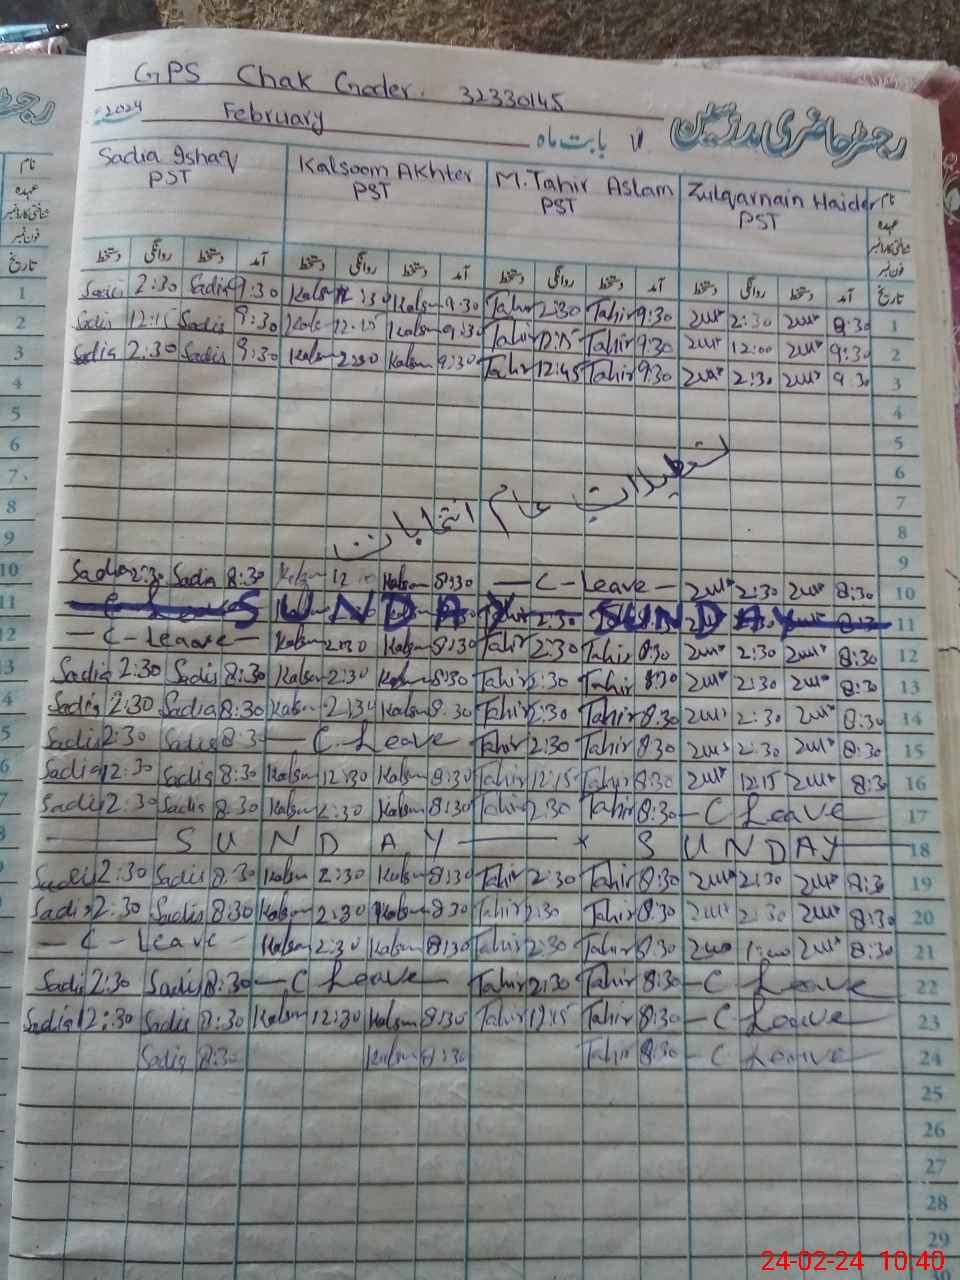 GPS Chak Goder. 32330145
2024 February بابت ماہ رجسٹر حاضری مدرسین
Sadia Ishaq Kalsoom Akhter M.Tahir Aslam Zulqarnain Haider نام
PST PST PST PST عہدہ
شناختی کارڈ نمبر
فون نمبر
دستخط روانگی دستخط آمد دستخط روانگی دستخط آمد دستخط روانگی دستخط آمد دستخط روانگی دستخط آمد تاریخ
1 Sadis 2:30 Sadis 9:30 Kalsm 9:30 Tahir 2:30 Tahir 9:30 Zul 2:30 Zul 8:30 1
2 Sadis 12:15 Sadis 9:30 Kals 12:15 Kalsm 9:30 Tahir 12:15 Tahir 9:30 Zul 12:00 Zul 9:30 2
3 Sadia 2:30 Sadis 9:30 Kalsm 2:30 Kalsm 9:30 Tahir 12:45 Tahir 9:30 Zul 2:30 Zul 9:30 3
4 4
5 5
6 تعطیلات 6
7 عام 7
8 انتخابات 8
9 9
10 Sadia 2:30 Sadia 8:30 Kalsm Kalsm 8:30 — C - Leave — Zul 2:30 Zul 8:30 10
11 SUNDAY SUNDAY 11
12 — C - Leave — Kalsm 2:30 Kalsm 8:30 Tahir 2:30 Tahir 8:30 Zul 2:30 Zul 8:30 12
13 Sadia 2:30 Sadis 8:30 Kalsm 2:30 Kalsm 8:30 Tahir 2:30 Tahir 8:30 Zul 2:30 Zul 8:30 13
Sadia 2:30 Sadia 8:30 Kalsm Kalsm 8:30 Tahir 2:30 Tahir 8:30 Zul 2:30 Zul 8:30 14
Sadis 2:30 Sadis 8:3 — C - Leave Tahir 2:30 Tahir 8:30 Zul 2:30 Zul 8:30 15
Sadia 12:30 Sadia 8:30 Kalsm 12:30 Kalsm 8:30 Tahir 12:15 Tahir 8:30 Zul 12:15 Zul 8:30 16
Sadis 2:30 Sadis 8:30 Kalsm 2:30 Kalsm 8:30 Tahir 2:30 Tahir 8:30 — C Leave 17
SUNDAY × SUNDAY 18
Sadis 2:30 Sadis 8:30 Kalsm 2:30 Kalsm 8:30 Tahir 2:30 Tahir 8:30 Zul 2:30 Zul 8:30 19
Sadis 2:30 Sadis 8:30 Kalsm 2:30 Kalsm 8:30 Tahir 2:30 Tahir 8:30 Zul 2:30 Zul 8:30 20
— C - Leave — Kalsm 2:30 Kalsm 8:30 Tahir 2:30 Tahir 8:30 Zul 1:00 Zul 8:30 21
Sadis 2:30 Sadis 8:30 — C Leave — Tahir 2:30 Tahir 8:30 — C Leave 22
Sadia 12:30 Sadis 8:30 Kalsm 12:30 Kalsm 8:30 Tahir 12:15 Tahir 8:30 — C Leave 23
Sadia 8:30 Kalsm 8:30 Tahir 8:30 — C Leave 24
25
26
27
28
29
24-02-24 10:40